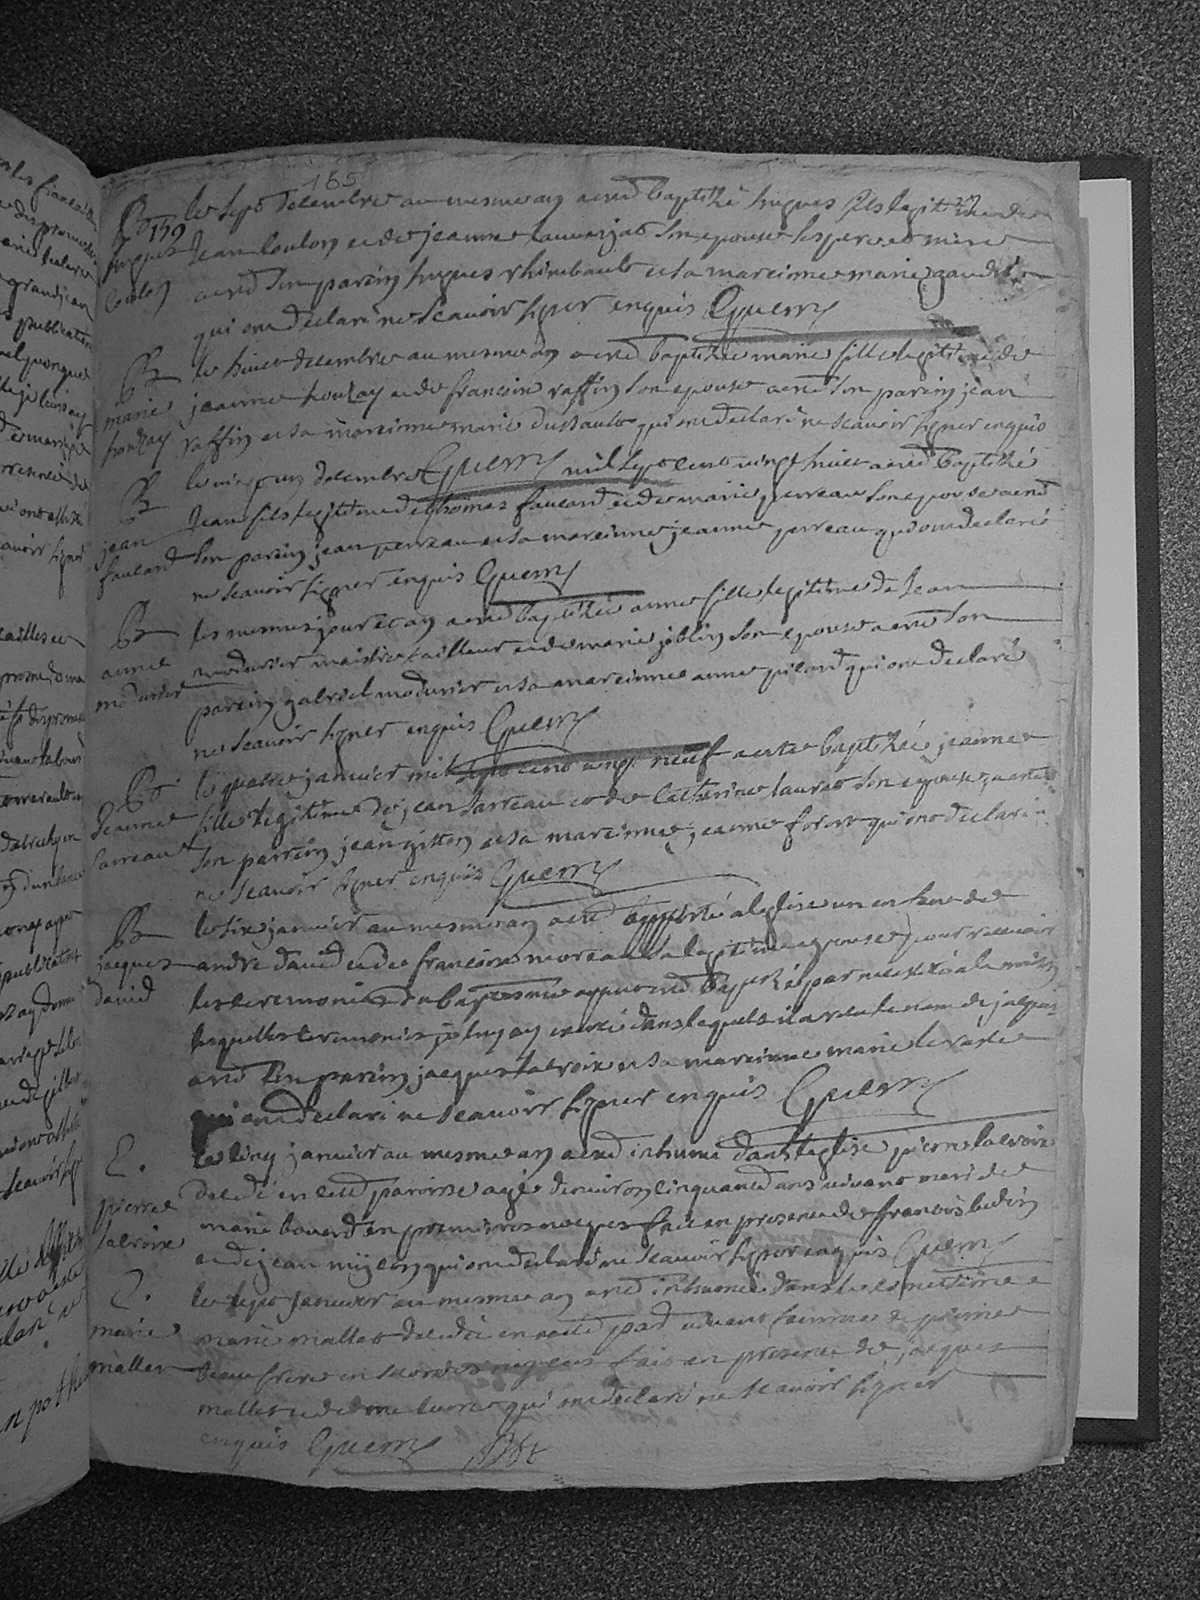 165
159
Bt hugues coulon
le sept decembre au mesme an a esté baptisé hugues fils legitime de
Jean Coulon et de jeanne son epouse ses pere et mere
a esté son parein hugues rhimbault et sa mareinne marie gaudri
qui ont declaré ne scavoir signer enquis Guerry
Bt marie
le huict decembre au mesme an a esté baptisée marie fille legitime de
et de francoise raffin son epouse a esté son parein jean
raffin et sa mareinne marie dussault qui ont declaré ne scavoir signer enquis
Guerry
Bt jean foulard
le vingt un decembre mil sept cent vingt huict a esté baptisé
Jean fils legitime de thomas foulard et de marie perreau son epouse a esté
son parein jean perreau et sa mareinne jeanne perreau qui ont declaré
ne scavoir signer enquis Guerry
Bt anne modurier
les mesmes jour et an a esté baptisée anne fille legitime de Jean
modurier maistre tailleur et de marie joblin son epouse a esté son
parein gabriel modurier et sa mareinne anne pilard qui ont declaré
ne scavoir signer enquis Guerry
Bt Jeanne sarreau
le janvier mil sept cent vingt neuf a esté baptisée jeanne
fille legitime de jean sarreau et de Catherine laurat son epouse a esté
son parrein jean gitton et sa mareinne jeanne qui ont declaré
ne scavoir signer enquis Guerry
Bt jacques david
le six janvier au mesme an a esté apporté a leglise un enfant de
andre david et de francoise moreau sa legitime epouse pour recevoir
les ceremonies du baptesme ayant esté baptisé par necessité a la maison
lesquelles ceremonies je luy ay dans lequel il a receu le nom de jacques
a esté son parein jacques lacroix et sa mareinne marie
qui ont declaré ne scavoir signer enquis Guerry
E. pierre lacroix
le cinq janvier au mesme an a esté inhumé dans leglise pierre lacroix
decedé en cette paroisse agé denviron cinquante ans vivant mari de
marie en premieres nopces fait en presence de francois bedin
et de jean qui ont declaré ne scavoir signer enquis Guerry
E. marie mallet
le sept janvier au mesme an a esté inhumée dans le cimetiere
marie mallet decedée en cette par vivant femme de pierre
beaufrere en secondes nopces fait en presence de jacques
mallet et de qui ont declaré ne scavoir signer
enquis Guerry